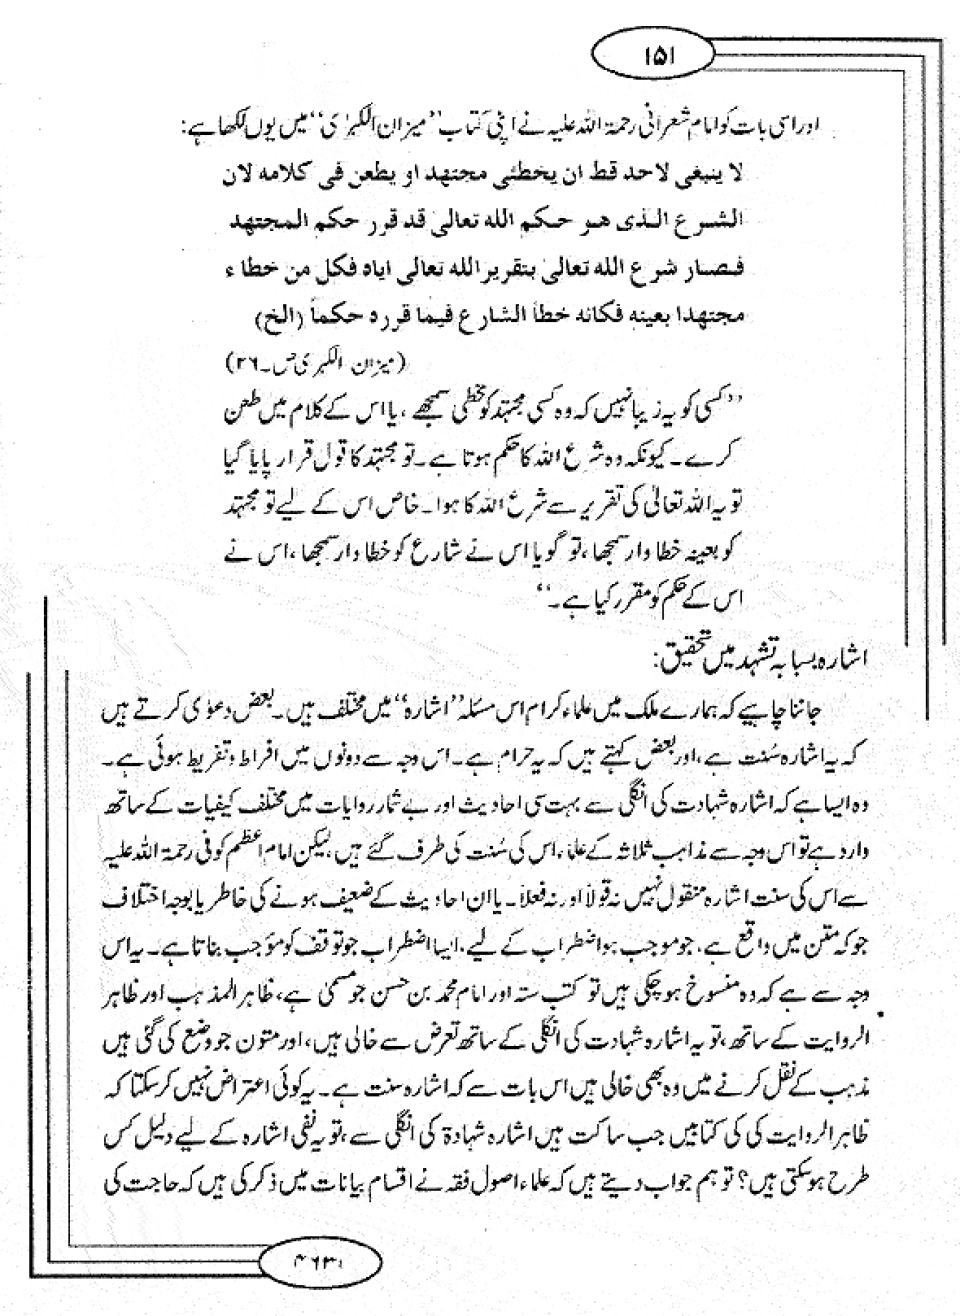 ۱۵۱
اور اسی بات کو امام شعرانی رحمۃ اللہ علیہ نے اپنی کتاب ’’میزان الکبرٰی‘‘ میں یوں لکھا ہے:
لا ینبغی لاحد قط ان یخطئی مجتھد او یطعن فی کلامہ لان
الشرع الذی ھو حکم اللہ تعالی قد قرر حکم المجتھد
فصار شرع اللہ تعالیٰ بتقریر اللہ تعالی ایاہ فکل من خطاء
مجتھدا بعینہ فکانہ خطأ الشارع فیما قررہ حکماً (الخ)
(میزان الکبریٰ ص۔۲۶)
’’کسی کو یہ زیبا نہیں کہ وہ کسی مجتہد کو مخطی سمجھے، یا اس کے کلام میں طعن
کرے۔ کیونکہ وہ شرع اللہ کا حکم ہوتا ہے۔ تو مجتہد کا قول قرار پایا گیا
تو یہ اللہ تعالیٰ کی تقریر سے شرع اللہ کا ہوا۔ خاص اس کے لیے تو مجتہد
کو بعینہ خطا وار سمجھا، تو گویا اس نے شارع کو خطا دار سمجھا، اس نے
اس کے حکم کو مقرر کیا ہے۔‘‘
اشارہ بسبابہ تشہد میں تحقیق:
جاننا چاہیے کہ ہمارے ملک میں علماء کرام اس مسئلہ ’’اشارہ‘‘ میں مختلف ہیں۔ بعض دعوٰی کرتے ہیں
کہ یہ اشارہ سُنت ہے، اور بعض کہتے ہیں کہ یہ حرام ہے۔ اس وجہ سے دونوں میں افراط و تفریط ہوئی ہے۔
وہ ایسا ہے کہ اشارہ شہادت کی انگلی سے بہت سی احادیث اور بے شمار روایات میں مختلف کیفیات کے ساتھ
وارد ہے تو اس وجہ سے مذاہب ثلاثہ کے علماء اس کی سُنت کی طرف گئے ہیں، لیکن امام اعظم کوفی رحمۃ اللہ علیہ
سے اس کی سنت اشارہ منقول نہیں نہ قولاً اور نہ فعلاً۔ یا ان احادیث کے ضعیف ہونے کی خاطر یا بوجہ اختلاف
جو کہ متن میں واقع ہے، جو موجب ہوا ضطراب کے لیے، ایسا اضطراب جو توقف کو مؤجب بناتا ہے۔ یہ اس
وجہ سے ہے کہ وہ منسوخ ہو چکی ہیں تو کتب ستہ اور امام محمد بن حسن جو مسمیٰ ہے، ظاہر المذہب اور ظاہر
الروایت کے ساتھ، تو یہ اشارہ شہادت کی انگلی کے ساتھ تعرض سے خالی ہیں، اور متون جو وضع کی گئی ہیں
مذہب کے نقل کرنے میں وہ بھی خالی ہیں اس بات سے کہ اشارہ سنت ہے۔ یہ کوئی اعتراض نہیں کر سکتا کہ
ظاہر الروایت کی کی کتابیں جب ساکت ہیں اشارہ شہادۃ کی انگلی سے، تو یہ نفی اشارہ کے لیے دلیل کس
طرح ہو سکتی ہیں؟ تو ہم جواب دیتے ہیں کہ علماء اصول فقہ نے اقسام بیانات میں ذکر کی ہیں کہ حاجت کی